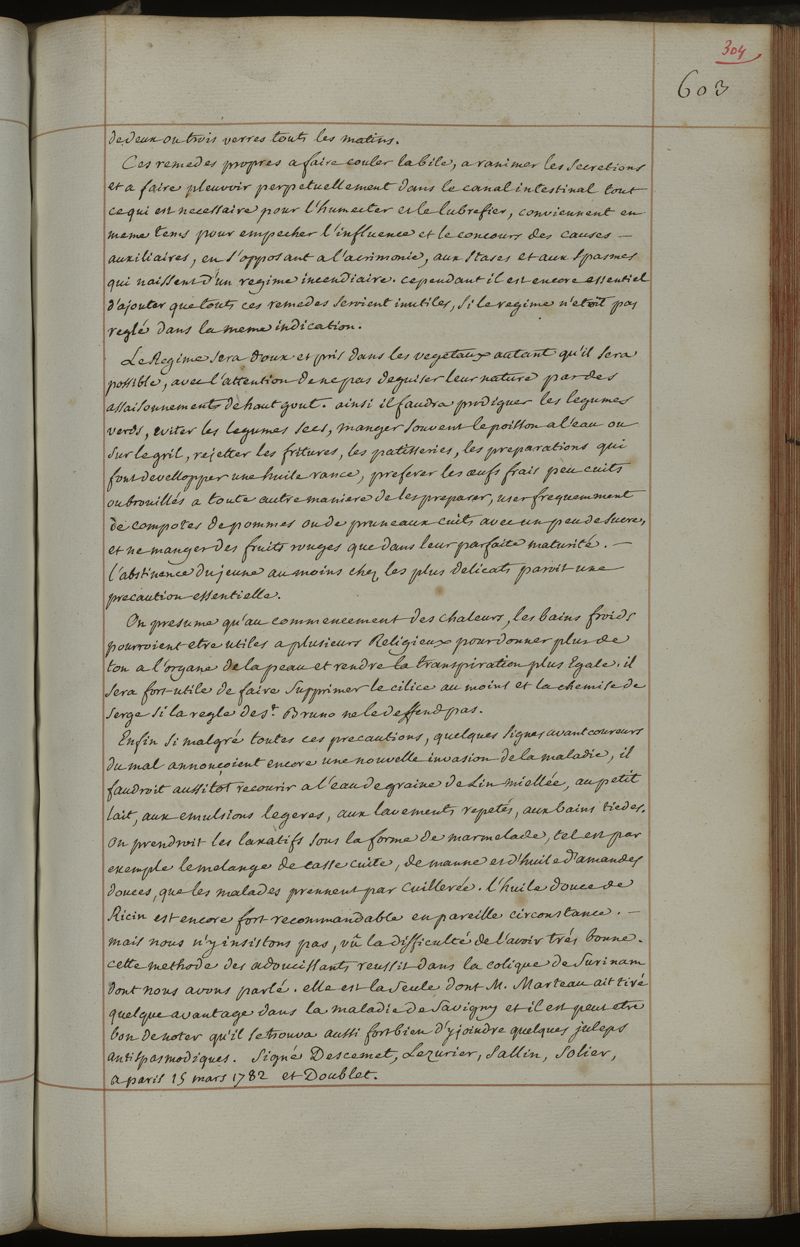 304
603
de deux ou trois verres touts les matins.
Ces remedes propres a faire couler la bile, a ranimer les secretions
et a faire pleuvoir perpetuellement dans le canal intestinal tout
ce qui est necessaire pour l'humecter et le lubrefier, conviennent en
meme tems pour empecher l'influence et le concours des causes —
auxiliaires, en s'opposant a l'acrimonie, aux stases et aux spasmes
qui naissent d'un regime incendiaire. cependant il est encore essentiel
d'ajouter que touts ces remedes seroient inutiles, si le regime n'etoit pas
reglé dans la meme indication.
Le Regime sera doux et pris dans les vegetaux autant qu'il sera
possible, avec l'attention de ne pas deguiser leur nature par des
assaisonnements de haut gout. ainsi il faudra prodiguer les legumes
verds, eviter les legumes secs, manger souvent le poisson a l'eau ou
sur le gril, rejetter les fritures, les patisseries, les preparations qui
font devellopper une huile rance, preferer les œufs frais peu cuits
ou brouillés a toute autre maniere de les preparer, user frequemment
de compotes de pommes ou de pruneaux cuits avec un peu de sucre,
et ne manger des fruits rouges que dans leur parfaite maturité. —
l'abstinence du jeune au moins chez les plus delicats paroit une
precaution essentielle.
On presume qu'au commencement des chaleurs, les bains froids
pourroient etre utiles a plusieurs Religieux pour donner plus de
ton a l'organe de la peau et rendre la transpiration plus Egale. il
sera fort utile de faire supprimer le cilice au moins et la chemise de
serge si la regle de st. Bruno ne le deffend pas.
Enfin si malgré toutes ces precautions, quelques signes avant coureurs
du mal annonçoient encore une nouvelle invasion de la maladie, il
faudroit aussitôt recourir a l'eau de graine de Lin miellée, au petit
lait, aux emulsions legeres, aux lavements repetés, aux bains tiedes.
On prendroit les laxatifs sous la forme de marmelade, tel est par
exemple le melange de casse cuite, de manne et d'huile d'amandes
douces, que les malades prennent par cuillerée. l'huile douce de
Ricin est encore fort recommandable en pareille circonstance. —
mais nous n'y insistons pas, vû la difficulté de l'avoir trés bonne.
cette methode des adoucissants reussit dans la colique de Surinam
dont nous avons parlé. elle est la seule dont M. Marteau ait tiré
quelque avantage dans la maladie de Savigny et il est peut etre
bon de noter qu'il se trouva aussi fort bien d'y joindre quelques juleps
antispasmodiques. Signé Descemet, Lezurier, Sallin, Solier,
a paris 15 mars 1782 et Doublet.